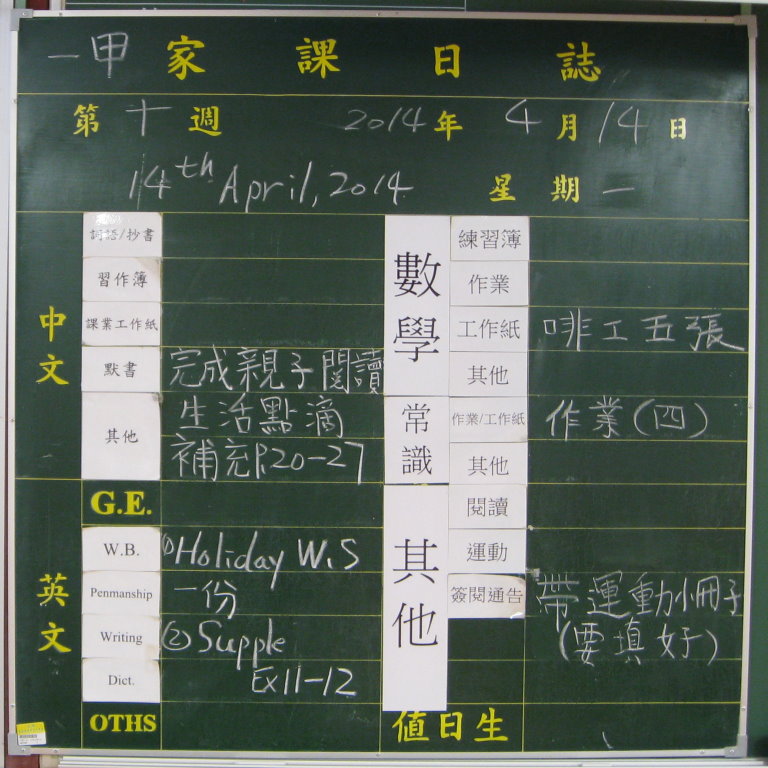 一甲 家課日誌
第十週 2014年4月14日
14th April, 2014 星期一
中文
詞語/抄書
習作簿
課業工作紙
默書 完成親子閱讀
其他 生活點滴
補充P.20-27
英文
G.E.
W.B. ①Holiday W.S
Penmanship 一份
Writing ②Supple
Dict. Ex11-12
OTHS
數學
練習簿
作業
工作紙 啡工五張
其他
常識
作業/工作紙 作業(四)
其他
其他
閱讀
運動
簽閱通告 帶運動小冊子
(要填好)
值日生